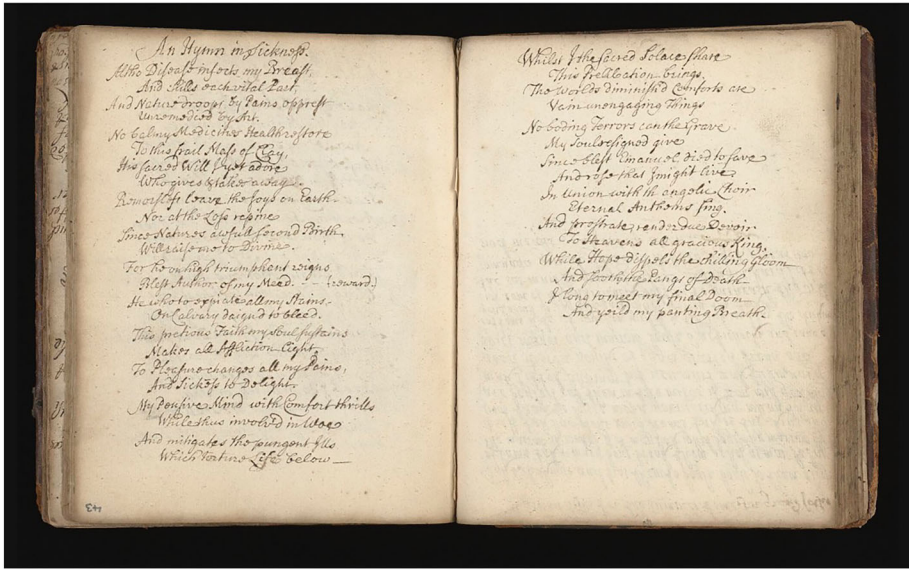 An Hymn in Sickness.
Altho Disease infects my Breast,
And Chills each vital Part,
And Nature droops by Pains opprest
Unremedied by Art.
No balmy Medicines Health restore
To this frail Mass of Clay,
His sacred Will I yet adore
Who gives & takes away.
Remorsless leave the Joys on Earth.
Nor at the Loss repine
Since Natures awfull second Birth
Will raise me to Divine.
For he on high triumphant reigns
Blest Author of my Meed. (reward)
He who to expiate all my Stains
On Calvary daign'd to bleed.
This pretious Faith my Soul sustains
Makes all Affliction Light.
To Pleasure changes all my Pains,
And Sickess to Delight.
My Pensive Mind with Comfort thrills
While thus involv'd in Woe
And mitigates the pungent Ills
Which torture Life below
Whilst I the sacred Solace share
This brings,
The Worlds diminish'd Comforts are
Vain unengaging Things
No boding Terrors can the Grave
My Soul resigned give
Since blest Emanuel died to save
And rose that I might live
In Union with th angelic Choir
Eternal Anthems sing.
And prostrate render due Devoir
To Heavens all gracious King.
While Hope dispels the chilling Gloom
And sooths the Pangs of Death
I long to meet my final Doom
And yeild my panting Breath.
43